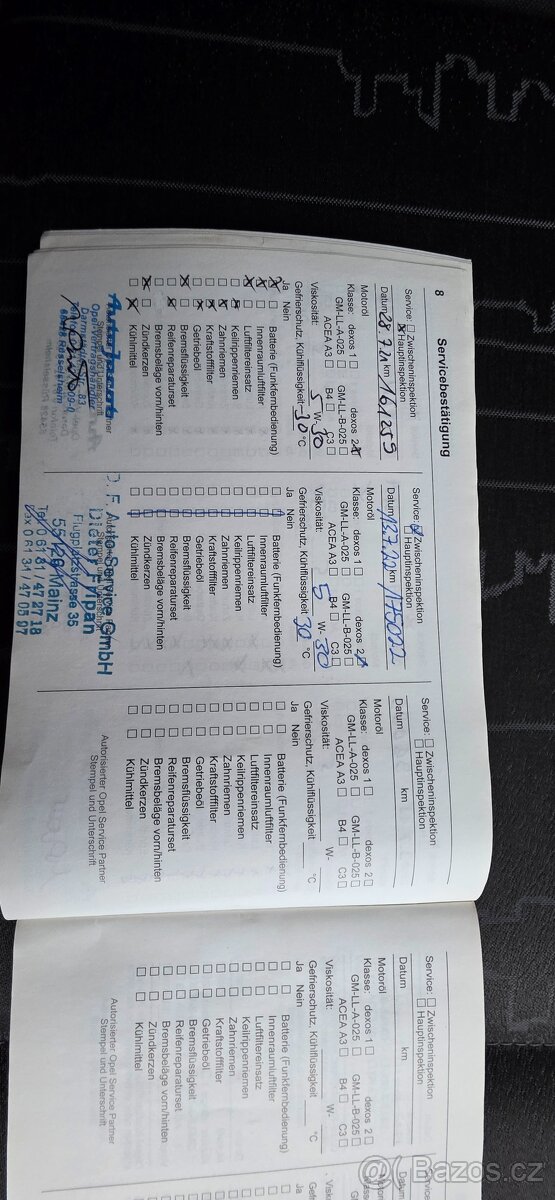 8
Servicebestätigung
Service: Zwischeninspektion
Hauptinspektion
Datum 28.7.21 km 161259
Motoröl
Klasse: dexos 1 dexos 2
GM-LL-A-025 GM-LL-B-025
ACEA A3 B4 C3
Viskosität: 5 W- 30
Gefrierschutz, Kühlflüssigkeit -30 °C
Ja Nein
Batterie (Funkfernbedienung)
Innenraumluftfilter
Luftfiltereinsatz
Keilrippenriemen
Zahnriemen
Kraftstofffilter
Getriebeöl
Bremsflüssigkeit
Reifenreparaturset
Bremsbeläge vorn/hinten
Zündkerzen
Kühlmittel
Service: Zwischeninspektion
Hauptinspektion
Datum km 175022
Motoröl
Klasse: dexos 1 dexos 2
GM-LL-A-025 GM-LL-B-025
ACEA A3 B4 C3
Viskosität: 5 W- 30
Gefrierschutz, Kühlflüssigkeit 30 °C
Ja Nein
Batterie (Funkfernbedienung)
Innenraumluftfilter
Luftfiltereinsatz
Keilrippenriemen
Zahnriemen
Kraftstofffilter
Getriebeöl
Bremsflüssigkeit
Reifenreparaturset
Bremsbeläge vorn/hinten
Zündkerzen
Kühlmittel
D.F. Auto Service GmbH
Dieter Fripan
Flugplatzstrasse 35
55126 Mainz
Tel. 0 61 31 / 47 27 18
Fax 0 61 31 / 47 05 97
Service: Zwischeninspektion
Hauptinspektion
Datum km
Motoröl
Klasse: dexos 1 dexos 2
GM-LL-A-025 GM-LL-B-025
ACEA A3 B4 C3
Viskosität: W-
Gefrierschutz, Kühlflüssigkeit °C
Ja Nein
Batterie (Funkfernbedienung)
Innenraumluftfilter
Luftfiltereinsatz
Keilrippenriemen
Zahnriemen
Kraftstofffilter
Getriebeöl
Bremsflüssigkeit
Reifenreparaturset
Bremsbeläge vorn/hinten
Zündkerzen
Kühlmittel
Autorisierter Opel Service Partner
Stempel und Unterschrift
Service: Zwischeninspektion
Hauptinspektion
Datum km
Motoröl
Klasse: dexos 1 dexos 2
GM-LL-A-025 GM-LL-B-025
ACEA A3 B4 C3
Viskosität: W-
Gefrierschutz, Kühlflüssigkeit °C
Ja Nein
Batterie (Funkfernbedienung)
Innenraumluftfilter
Luftfiltereinsatz
Keilrippenriemen
Zahnriemen
Kraftstofffilter
Getriebeöl
Bremsflüssigkeit
Reifenreparaturset
Bremsbeläge vorn/hinten
Zündkerzen
Kühlmittel
Autorisierter Opel Service Partner
Stempel und Unterschrift
Bazos.cz